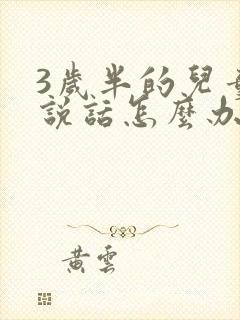 3歲半的兒
說話怎麼办
黃雲